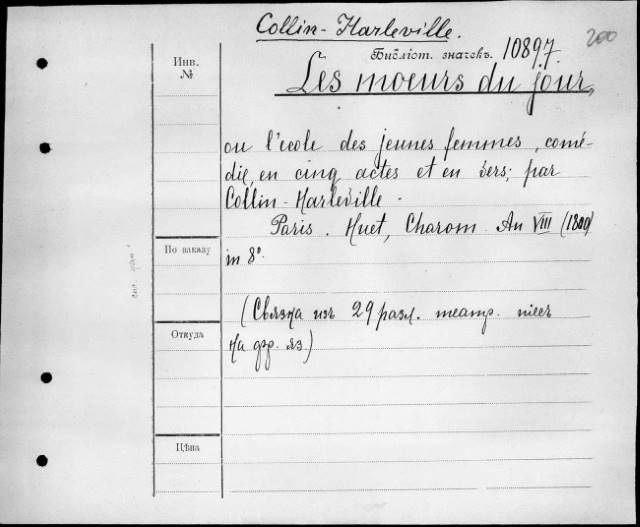 Collin-Harleville.
200
Инв.
№
Библіот. значекъ. 10897.
Les moeurs du jour,
ou l'école des jeunes femmes, comé-
die, en cinq actes et en vers; par
Collin-Harleville.
Paris. Huet, Charon. An VIII (1800)
По заказу
in 8°
(Связка изъ 29 разл. театр. пиес
Откуда
на фр. яз.)
Цѣна